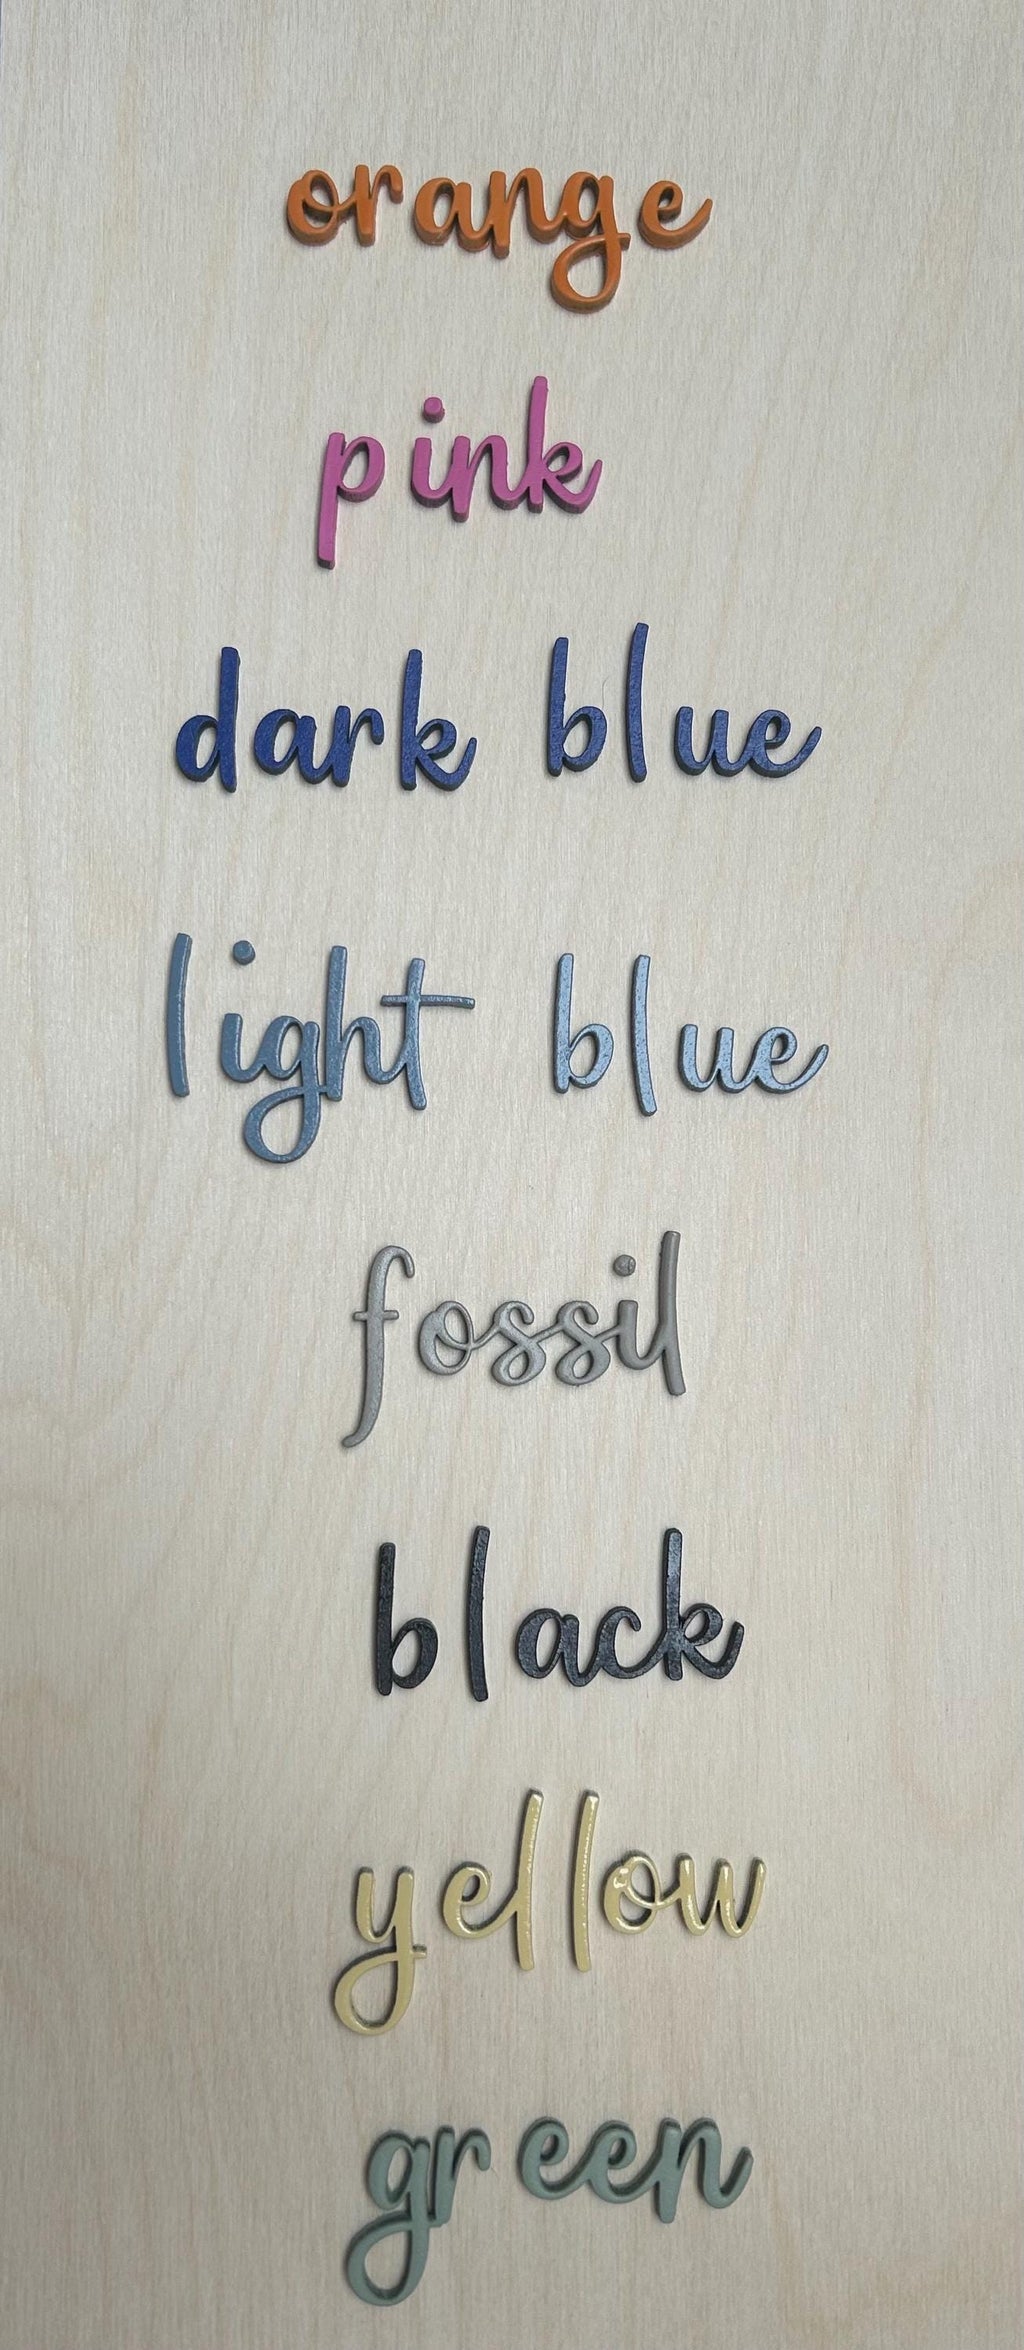 orange
pink
dark blue
light blue
fossil
black
yellow
green